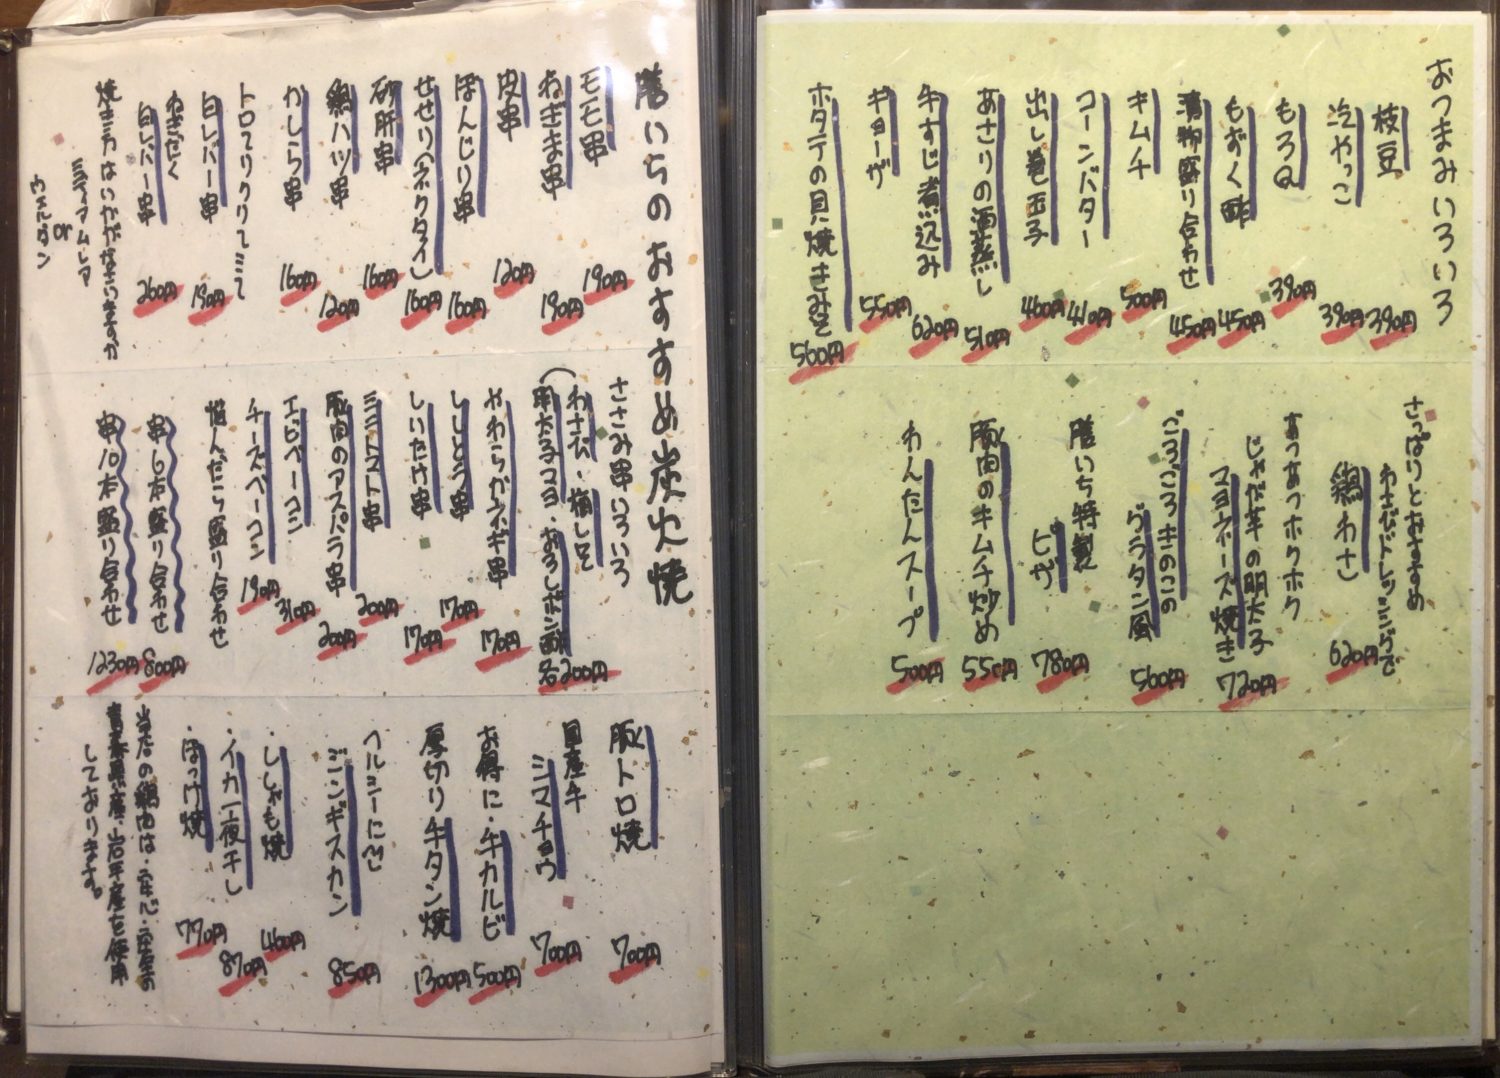 おつまみいろいろ
枝豆 390円
冷やっこ 390円
もろQ 390円
もずく酢 450円
漬物盛り合わせ 450円
キムチ 500円
コーンバター 410円
出し巻玉子 460円
あさりの酒蒸し 510円
牛すじ煮込み 620円
ギョーザ 550円
ホタテの貝焼きみそ 560円
さっぱりとおすすめ
わさびドレッシングで
鶏わさ 620円
あつあつホクホク
じゃが芋の明太子
マヨネーズ焼き 720円
ごろごろきのこの
グラタン風 560円
膳いち特製
ピザ 780円
豚肉のキムチ炒め 550円
わんたんスープ 500円
膳いちのおすすめ炭火焼
モモ串 190円
ねぎま串 190円
皮串 120円
ぼんじり串 160円
せせり(ネクタイ) 160円
砂肝串 160円
鶏ハツ串 120円
かしら串 160円
トロてりクリてミて
白レバー串 190円
ねぎだく
白レバー串 260円
焼き方はいかがなさいますか
ミディアムレア
or
ウェルダン
ささみ串いろいろ
(わさび・梅しそ
明太子マヨ・おろしポン酢 各200円
やわらかネギ串 170円
ししとう串 170円
しいたけ串 170円
ミニトマト串 200円
豚肉のアスパラ串 200円
エビベーコン 310円
チーズベーコン 190円
悩んだら盛り合わせ
串6本盛り合わせ 800円
串10本盛り合わせ 1230円
豚トロ焼 700円
国産牛
シマチョウ 700円
お得に・牛カルビ 500円
厚切り牛タン焼 1300円
ヘルシーに
ジンギスカン 850円
・ししゃも焼 460円
・イカ一夜干し 870円
・ほっけ焼 770円
当店の鶏肉は・安心・安全の
青森県産・岩手産を使用
しております。